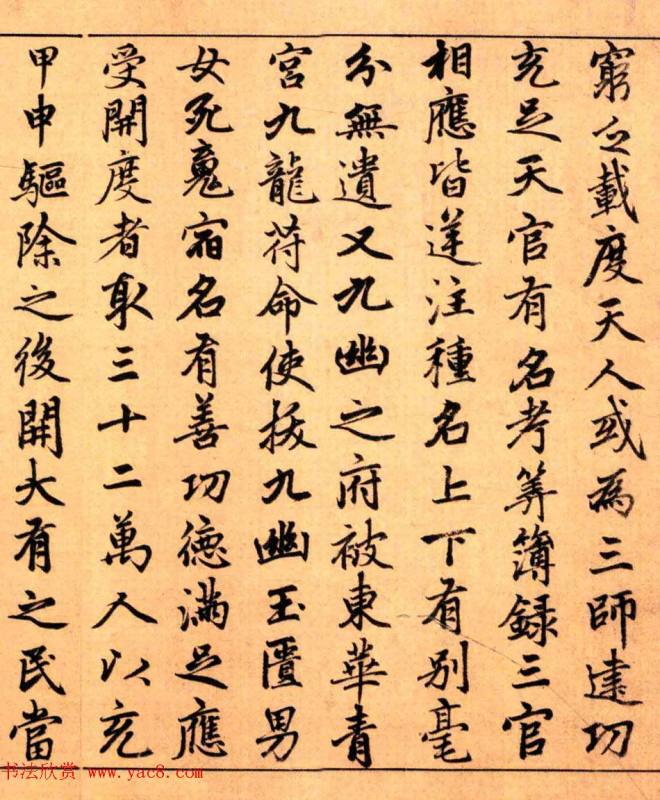 窮之載度天人或為三師建功
充足天官有名考筭簿錄三官
相應皆逆注種名上下有別毫
分無遺又九幽之府被東華青
宮九龍苻命使拔九幽玉匱男
女死魂宿名有善功德滿足應
受開度者取三十二萬人以充
甲申驅除之後開大有之民當
书法欣赏 www.yac8.com